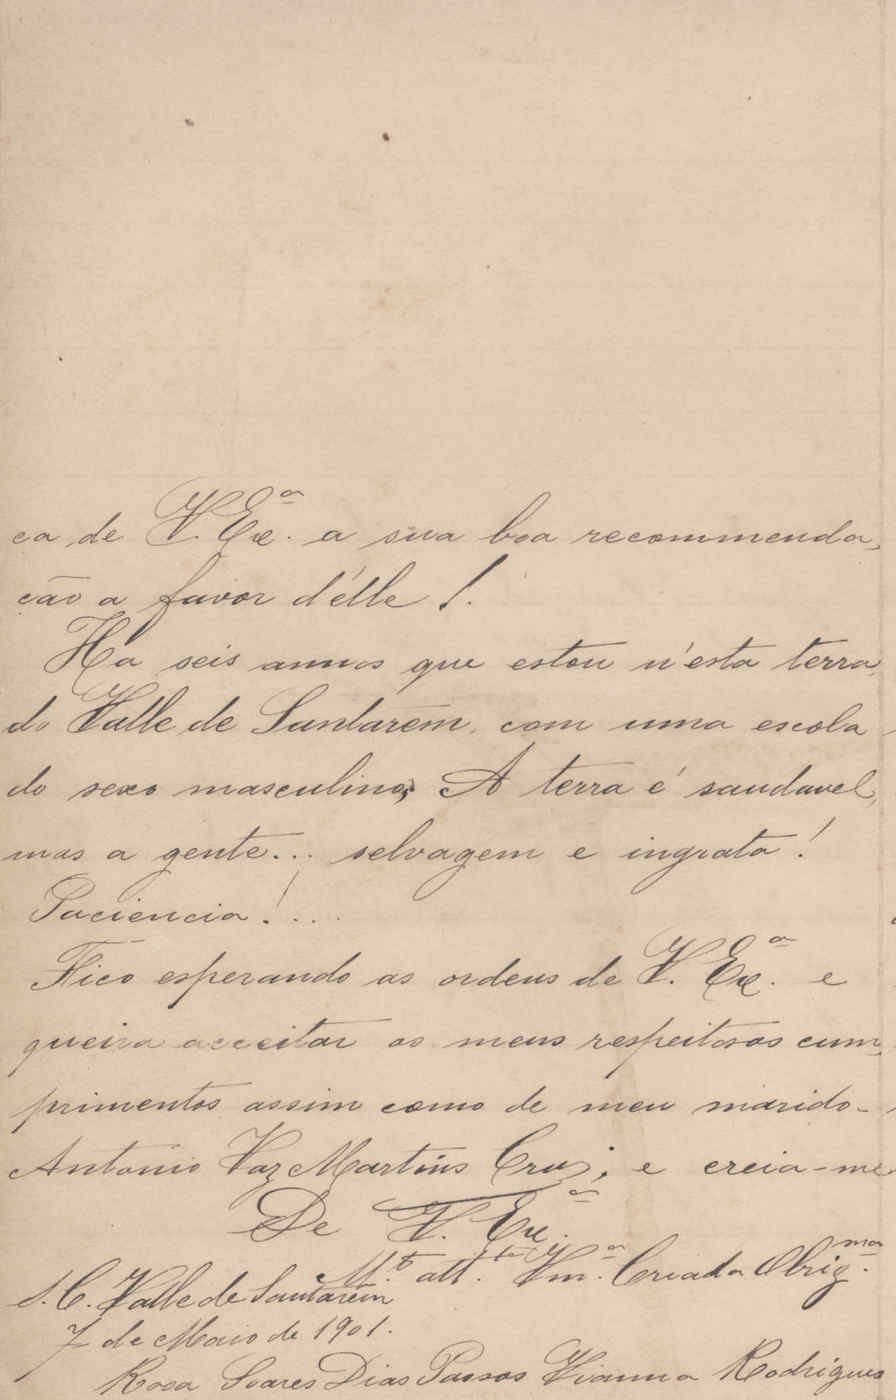 ca de V. Ex.ª a sua boa recommenda-
ção a favor d'élle !.
Ha seis annos que estou n'esta terra
do Valle de Santarem, com uma escola
do sexo masculino; A terra é saudavel,
mas a gente... selvagem e ingrata !
Paciencia !...
Fico esperando as ordens de V. Ex.ª e
queira acceitar os meus respeitosos cum-
primentos assim como de meu marido-
Antonio Vaz Martins Cruz; e creia-me
De V. Ex.ª
M.to att.ta Vm.ª Criada Obrig.ma
S. C. Valle de Santarem
7 de Maio de 1901.
Rosa Soares Dias Passos Vianna Rodrigues